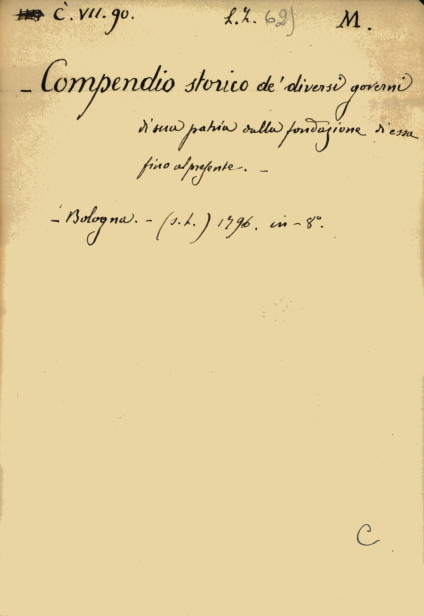 C. VII. 90. L.Z. 62) M.
- Compendio storico de' diversi governi
di sua patria dalla fondazione di essa
fino al presente. -
- Bologna. - (s.t.) 1796. in - 8º.
C